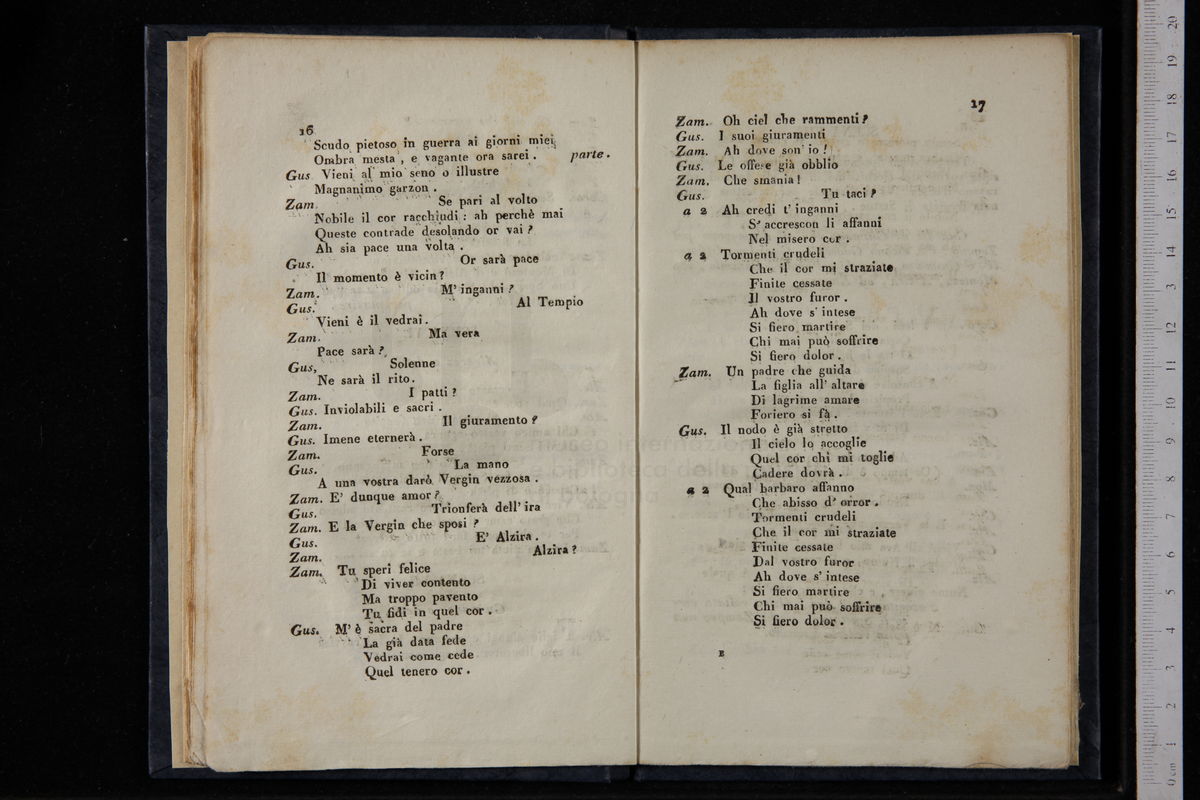 16
Scudo pietoso in guerra ai giorni miei,
Ombra mesta , e vagante ora sarei . parte.
Gus Vieni al mio seno o illustre
Magnanimo garzon .
Zam. Se pari al volto
Nobile il cor racchiudi : ah perchè mai
Queste contrade desolando or vai ?
Ah sia pace una volta .
Gus. Or sarà pace
Il momento è vicin ?
Zam. M' inganni ?
Gus. Al Tempio
Vieni è il vedrai .
Zam. Ma vera
Pace sarà ?
Gus, Solenne
Ne sarà il rito .
Zam. I patti ?
Gus. Inviolabili e sacri .
Zam. Il giuramento ?
Gus. Imene eternerà .
Zam. Forse
Gus. La mano
A una vostra darò Vergin vezzosa .
Zam. E' dunque amor ?
Gus. Trionferà dell' ira
Zam. E la Vergin che sposi ?
Gus. E' Alzira .
Zam. Alzira ?
Zam. Tu speri felice
Di viver contento
Ma troppo pavento
Tu fidi in quel cor .
Gus. M' è sacra del padre
La già data fede
Vedrai come cede
Quel tenero cor .
17
Zam. Oh ciel che rammenti ?
Gus. I suoi giuramenti
Zam. Ah dove son' io !
Gus. Le offese già obblio
Zam. Che smania !
Gus. Tu taci ?
a 2 Ah credi t' inganni
S' accrescon li affanni
Nel misero cor .
a 2 Tormenti crudeli
Che il cor mi straziate
Finite cessate
Il vostro furor .
Ah dove s' intese
Si fiero martire
Chi mai può soffrire
Si fiero dolor .
Zam. Un padre che guida
La figlia all' altare
Di lagrime amare
Foriero si fà .
Gus. Il nodo è già stretto
Il cielo lo accoglie
Quel cor chi mi toglie
Cadere dovrà .
a 2 Qual barbaro affanno
Che abisso d' orror .
Tormenti crudeli
Che il cor mi straziate
Finite cessate
Dal vostro furor
Ah dove s' intese
Si fiero martire
Chi mai può soffrire
Si fiero dolor .
E